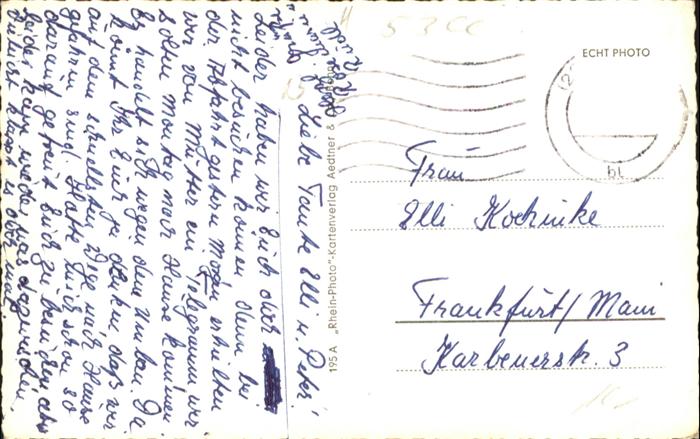 Liebe Tante Elli u. Peter!
Leider haben wir Euch doch
nicht besuchen können denn bei
der Abfahrt gestern Morgen erhielten
wir von Mutter ein Telegramm wir
sollen Montag nach Hause kommen
Es handelt sich wegen dem Umbau. Da
könnt Ihr Euch ja denken, daß wir
auf dem schnellsten Wege nach Hause
gefahren sind. Hatte mich schon so
darauf gefreut Euch zu besuchen aber
leider kam wieder was dazwischen.
ECHT PHOTO
Frau
Elli Kochinke
Frankfurt/Main
Karbenerstr. 3
195 A „Rhein-Photo"-Kartenverlag Aedtner &